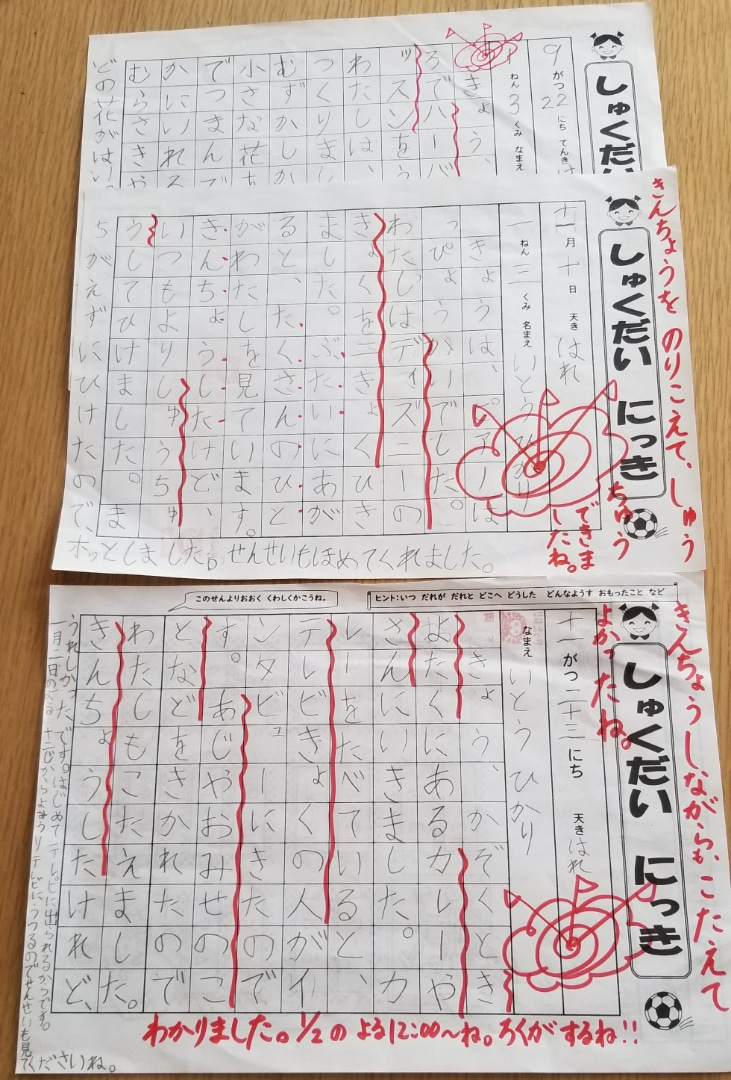 しゅくだい
9がつ22にち てんき は
ねん 3 くみ なまえ
きょう、
ろでハーバ
ッスンをう
わたしは、
つくりまし
むずかしか
小さな花ち
でつまんで
かにいれる
むらさきや
どの花がはいっ
きんちょうを のりこえて、しゅう
ちゅう
できま
したね。
しゅくだい にっき
十一月 十日 天き はれ
一 ねん 三 くみ 名まえ いとうひかり
きょうは、ピアノは
っぴょうかいでした。
わたしはディズニーの
きょくを二きょくひき
ました。ぶたいにあが
ると、たくさんのひと
がわたしを見ています。
きんちょうしたけど、
いつもよりしゅうちゅ
うしてひけました。ま
ちがえずにひけたので、
ホッとしました。せんせいもほめてくれました。
このせんよりおおく くわしくかこうね。
ヒント:いつ だれが だれと どこへ どうした どんなようす おもったこと など
きんちょうしながらも、こたえて
よかったね。
しゅくだい にっき
十一がつ二十三にち 天き はれ
なまえ いとうひかり
きょう、かぞくとき
よたくにあるカレーや
さんにいきました。カ
レーをたべていると、
テレビきょくの人がイ
ンタビューにきたので
す。あじやおみせのこ
となどをきかれたので
わたしもこたえました。
きんちょうしたけれど、
うれしかったです。はじめてテレビに出られるからです。
一月二日のよる十二じからよみうりテレビにうつるのでせんせいも見てくださいね。
わかりました。1/2の よる12:00〜ね。ろくがするね!!